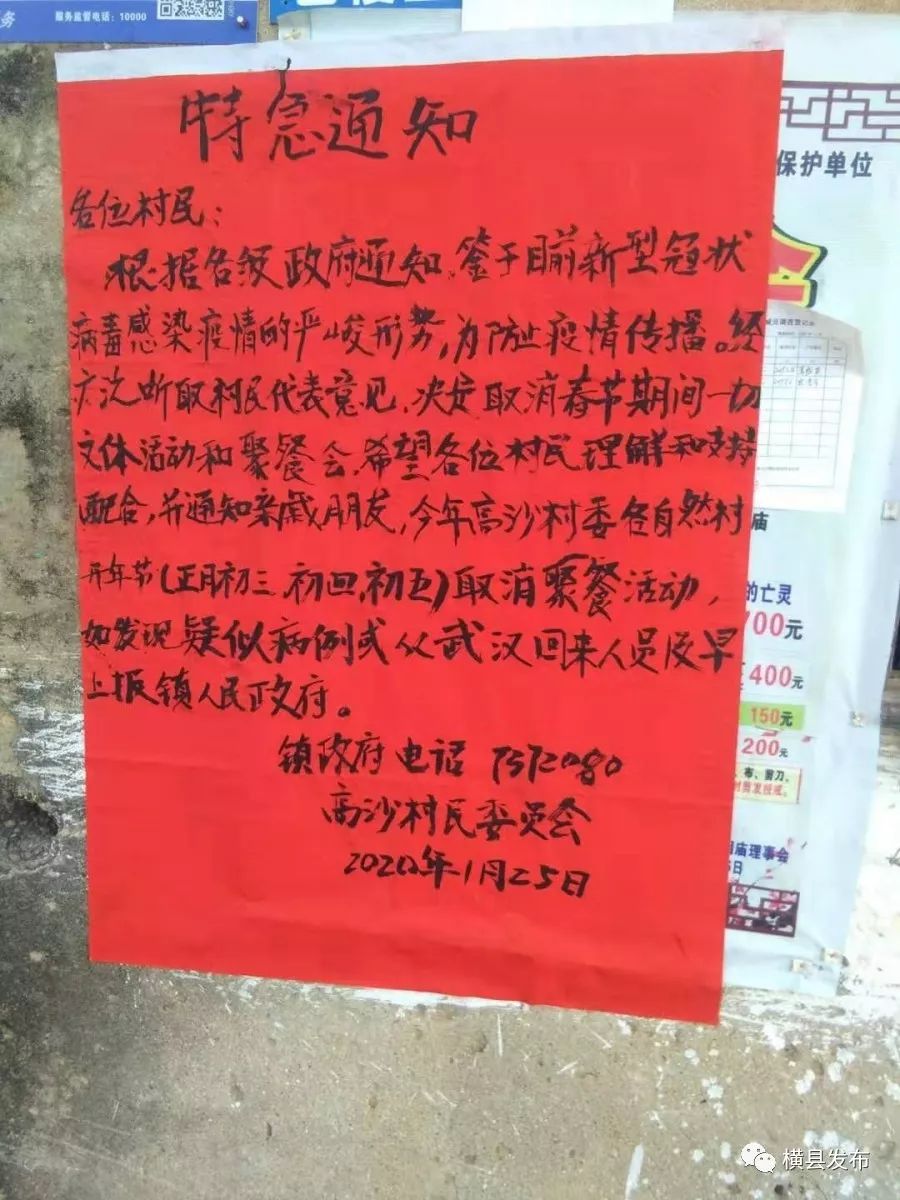 务
服务监督电话：10000
特急通知
各位村民：
根据各级政府通知、鉴于目前新型冠状
病毒感染疫情的严峻形势，为防止疫情传播。经
广泛听取村民代表意见、决定取消春节期间一切
文体活动和聚餐会，希望各位村民理解和支持
配合，并通知亲戚朋友，今年高沙村委各自然村
开年节（正月初三、初四、初五）取消聚餐活动，
如发现疑似病例或从武汉回来人员及早
上报镇人民政府。
镇政府电话 7572080
高沙村民委员会
2020年1月25日
保护单位
庙
的亡灵
700元
400元
150元
200元
布、剪刀、
庙理事会
5日
横县发布